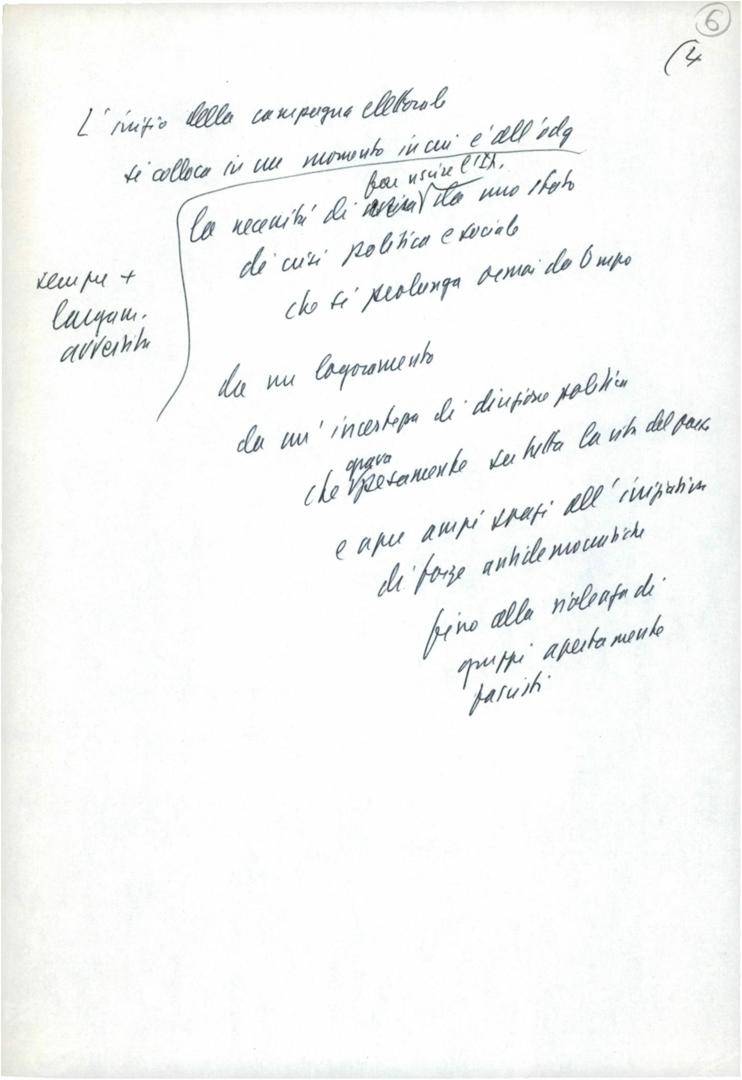 6
(4
L'inizio della campagna elettorale
si colloca in un momento in cui è all'odg
far uscire l'It.
la necessità di uscire da uno stato
di crisi politica e sociale
che si prolunga ormai da tempo
sempre +
largam.
avvertita
da un logoramento
da un'incertezza di direzione politica
grava
che pesantemente su tutta la vita del paese
e apre ampi spazi all'iniziativa
di forze antidemocratiche
fino alla violenza di
gruppi apertamente
fascisti